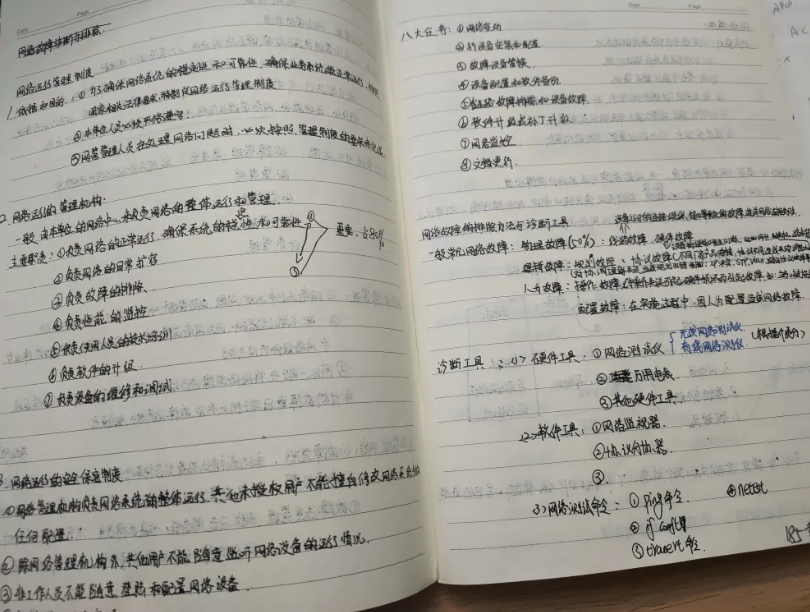 网络故障诊断与排除
网络运行管理制度
1. 依据和目的：①为了确保网络系统的稳定性和可靠性，确保业务系统的正常运行，
国家相关法律要求，特制定网络运行管理制度
②本单位人员必须严格遵守
③网管管理人员在处理网络问题时，必须按照管理制度的要求来完成
2. 网络运行的管理机构：
一般由本单位的网络中心来负责网络的整体运行和管理。
主要职责：①负责网络的正常运行，确保系统的稳定性和可靠性
②负责网络的日常扩容
③负责故障的排除
④负责性能的监控
⑤负责使用人员的技术培训
⑥负责软件的升级
⑦负责设备的维修和调试
3. 网络运行的安全保密制度
①网络管理机构负责网络系统的整体运行，其他未授权用户不能擅自修改网络系统的
任何配置
②除网络管理机构外，其他用户不能随意监听网络设备的运行情况。
③非工作人员不能随意登陆和配置网络设备
八大任务：①网络变动
②新设备安装和配置
③故障设备替换
④设备配置和软件备份
⑤链路故障排除和设备故障
⑥软件升级或补丁升级
⑦网络监控
⑧文档更新
网络故障的排除方法与诊断工具
一般常见网络故障：物理故障(50%)：线路故障、硬件故障
逻辑故障：协议故障
人为故障：操作故障
配置故障：在实施过程中，因人为配置造成网络故障
诊断工具：(1) 硬件工具：①网络测试仪 无线网络测试仪
有线网络测试仪 (根据介质分)
②万用电表
③其他硬件工具
(2) 软件工具：①网络监视器
②协议分析器
③
(3) 网络测试命令：①ping命令 ④netst
②if config
③tracert命令